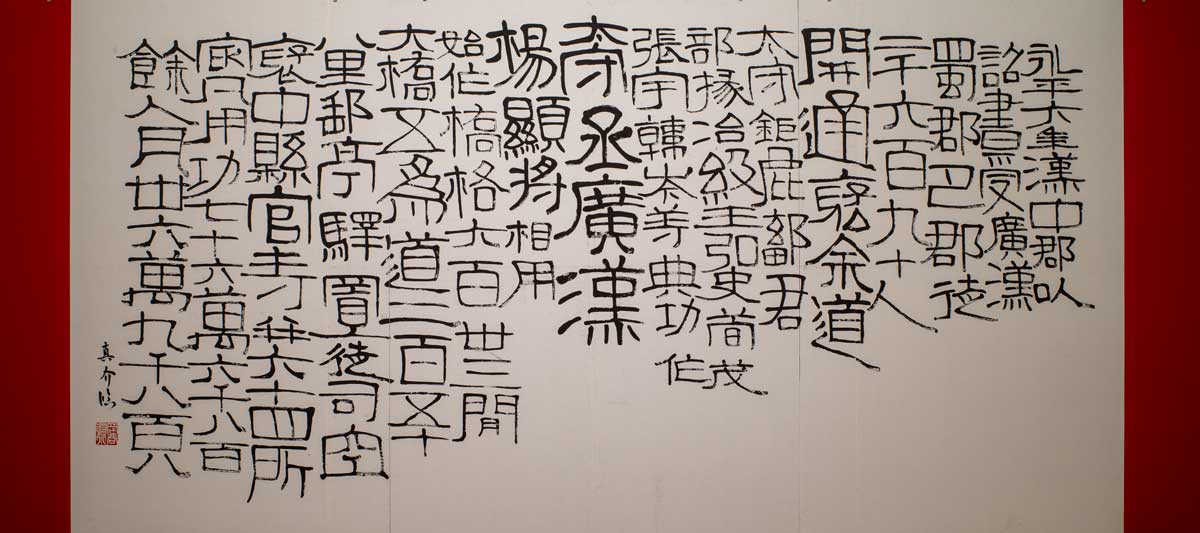 永平六年漢中郡以
詔書受廣漢
蜀郡巴郡徒
二千六百九十人
開通褒余道
太守鉅鹿鄐君
部掾冶級王弘史荀茂
張宇韓岑等典功作
太守丞廣漢
楊顯將相用
始作橋格六百卅三間
大橋五為道二百五十
八里郵亭驛置徒司空
褒中縣官寺并六十四所
最凡用功七十六萬六千八百
餘人瓦卅六萬九千八百
真介臨